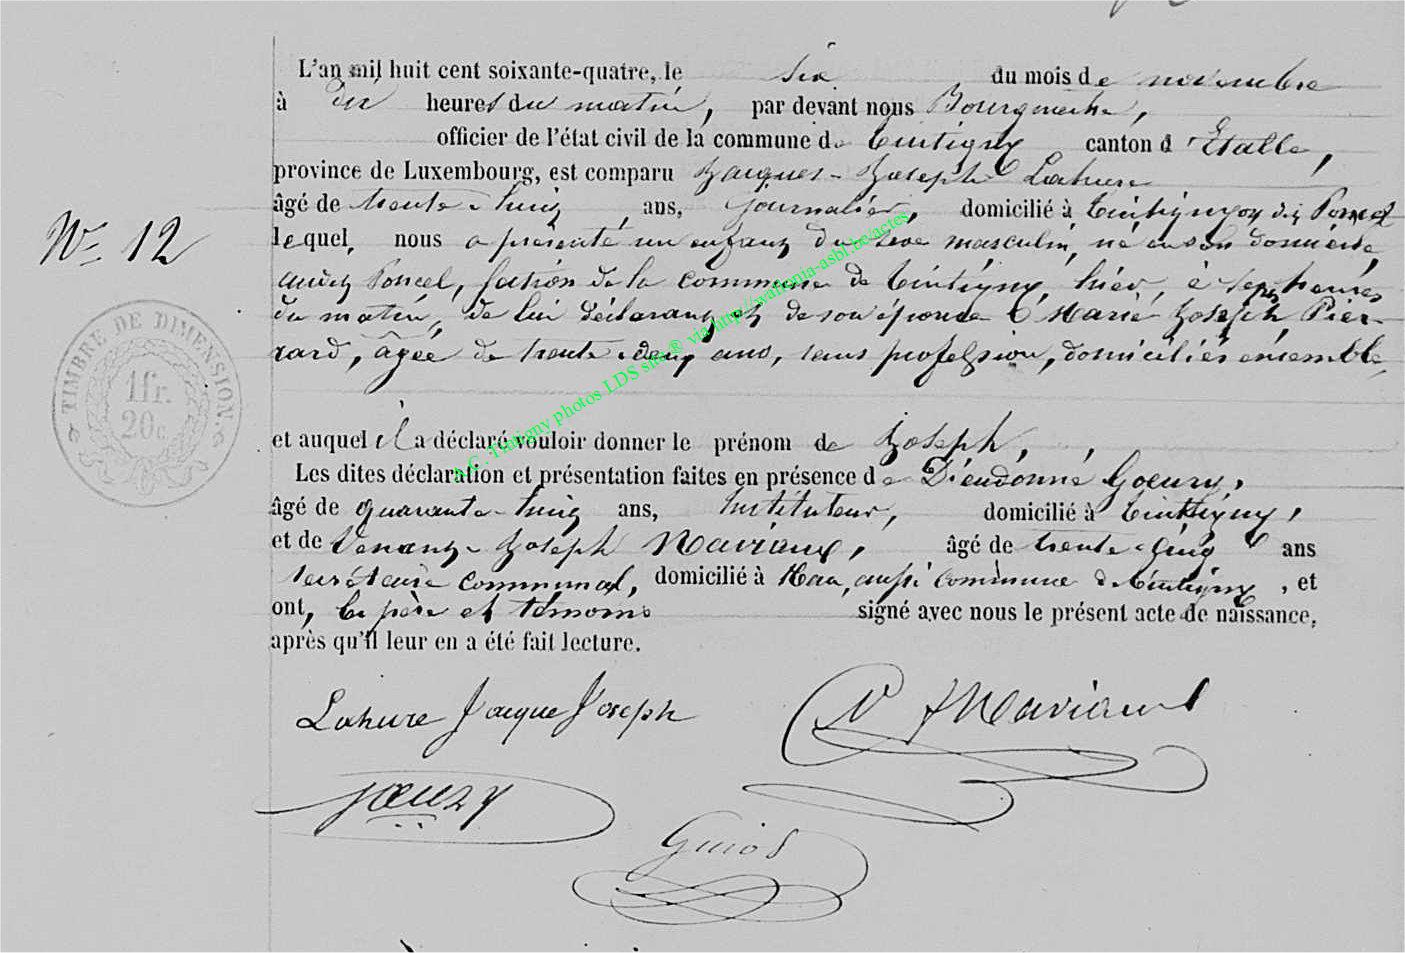 L'an mil huit cent soixante-quatre, le six du mois de novembre
à dix heures du matin, par devant nous Bourgmestre,
officier de l'état civil de la commune de Tintigny canton d'Etalle,
province de Luxembourg, est comparu Jacques-Joseph Lahure
âgé de trente-huit ans, journalier, domicilié à Tintigny Poncel
lequel, nous a présenté un enfant du sexe masculin, né en son domicile,
audit Poncel, section de la commune de Tintigny, hier, à sept heures
du matin, de lui déclarant et de son épouse Marie Joseph Pier-
rard, âgée de trente-deux ans, sans profession, domiciliés ensemble,
et auquel il a déclaré vouloir donner le prénom de Joseph,
Les dites déclaration et présentation faites en présence de Dieudonné Goeury,
âgé de quarante-huit ans, Instituteur, domicilié à Tintigny,
et de Venant-Joseph Maviaux, âgé de trente-cinq ans
secrétaire communal, domicilié à Han, aussi commune de Tintigny, et
ont, les père et témoins signé avec nous le présent acte de naissance,
après qu'il leur en a été fait lecture.
N° 12
TIMBRE DE DIMENSION.
1fr.
20c
Lahure Jacque Joseph
V J Maviaux
Goeury
Guiot
A.C. Tintigny photos LDS site ® via http://wallonia-asbl.be/actes